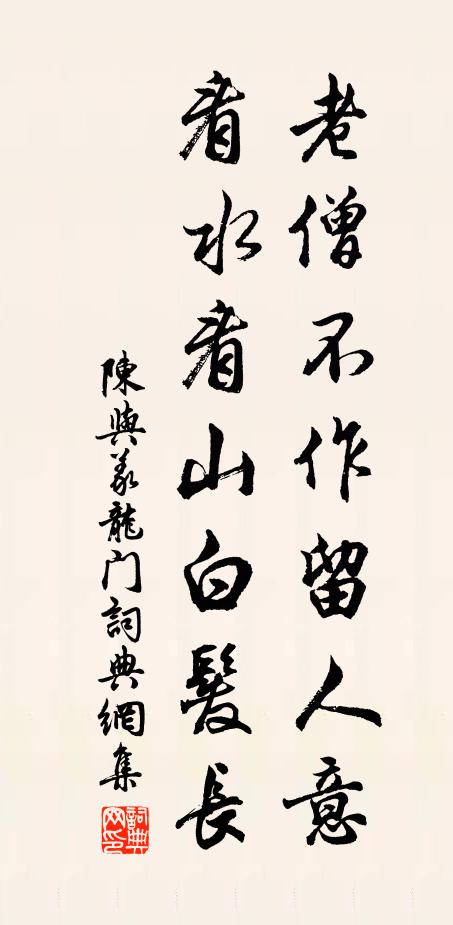 老僧不作留人意
看水看山白髮長
陳與義龍门詞典網集
詞典网印